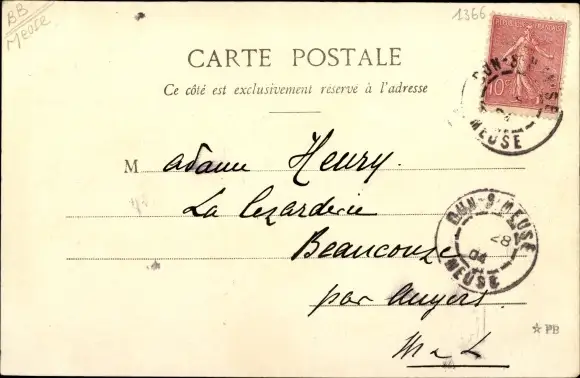 BB
Meuse
1366
REPUBLIQUE FRANÇAISE
10c
DUN-S-MEUSE
04
MEUSE
CARTE POSTALE
Ce côté est exclusivement réservé à l'adresse
M adame Henry.
La lezarderie
Beaucouze
par Angers
M & L
DUN-S-MEUSE
28
04
MEUSE
☆ PB